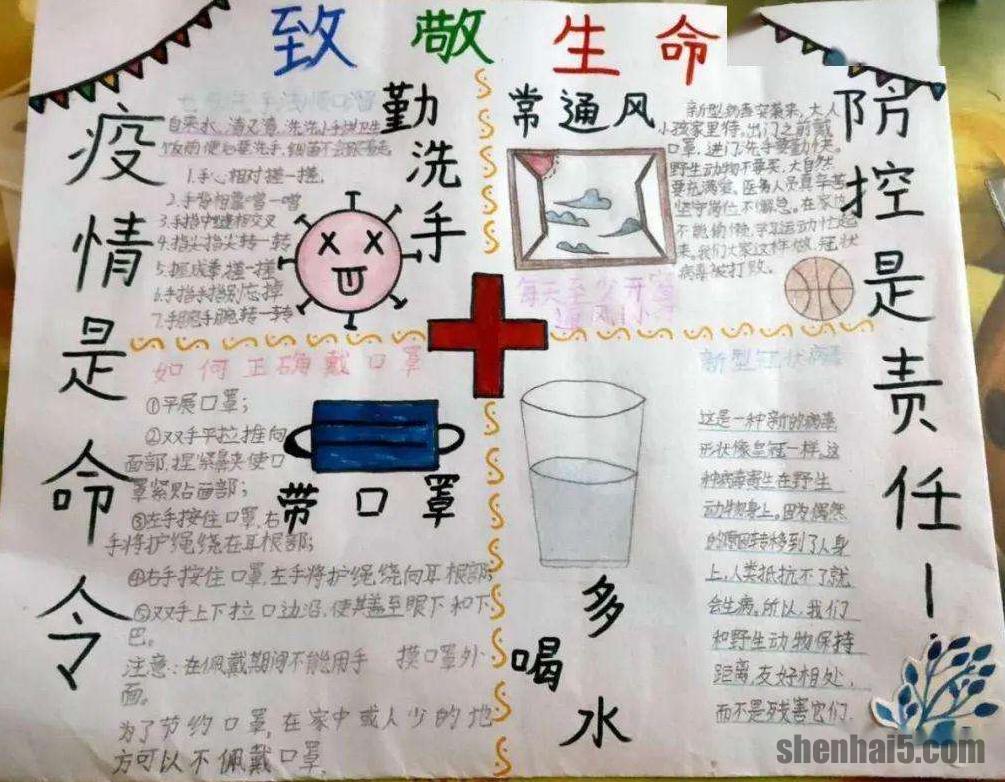 致敬生命
疫情是命令
防控是责任!
勤洗手
洗手
自来水,清又清,洗洗小手讲卫生
饭前便后要洗手,细菌不会跟着走
1.手心相对搓一搓,
2.手背相靠
3.手指中缝相交叉
4.指尖指尖转一转
5.握成拳搓一搓
6.手指手指别忘掉
7.手腕手腕转一转
常通风
新型病毒突袭来,大人
小孩家里待,出门之前戴
口罩,进门洗手要勤快。
野生动物不要买,大自然
要充满爱,医务人员真辛苦
坚守岗位不懈怠。在家
不能偷懒,学习运动忙起
来,我们大家这样做,冠状
病毒被打败。
每天至少开窗
通风
如何正确戴口罩
①平展口罩;
②双手平拉推向
面部,捏紧鼻夹使口
罩紧贴面部;
③左手按住口罩,右
手将护绳绕在耳根部;
④右手按住口罩左手将护绳绕向耳根部;
⑤双手上下拉口边沿,使其盖至眼下和下
巴。
注意:在佩戴期间不能用手 摸口罩外
面。
为了节约口罩,在家中或人少的地
方可以不佩戴口罩.
带口罩
多喝水
新型冠状病毒
这是一种新的病毒
形状像皇冠一样,这
种病毒寄生在野生
动物身上。因为偶然
的原因转移到了人身
上,人类抵抗不了就
会生病。所以,我们
和野生动物保持
距离,友好相处,
而不是残害它们.
shenhai5.com